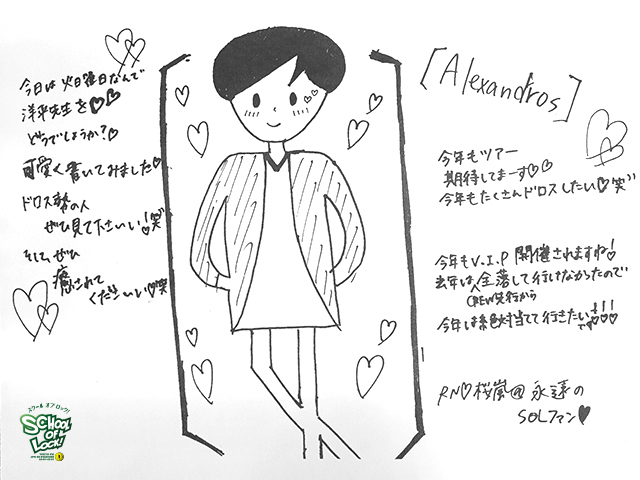 今日は火曜日なんで
洋平先生を♡♡
どうでしょうか?♡
可愛く書いてみました♡
ドロス勢の人
ぜひ見て下さいい!笑"
そして、ぜひ
癒されて
くださいい♡笑
[Alexandros]
今年もツアー
期待してまーす♡♡
今年もたくさんドロスしたい♡笑"
今年もV.I.P開催されますね!
去年は全落して行けなかったので
CREW先行から
今年は絶対当てて行きたいです!!!♡♡♡
RN♡桜嵐@永遠の
SOLファン♥
スクール オブ ロック!
SCHOOL
OF
LOCK!